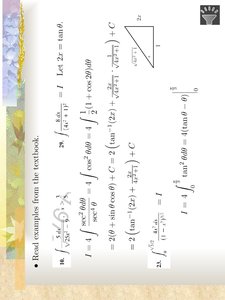 • Read examples from the textbook.
20. ∫ 8 dx / (4x² + 1)² = I Let 2x = tan θ.
I = 4 ∫ sec²θdθ / sec⁴θ = 4 ∫ cos²θdθ = 4 ∫ 1/2 (1 + cos 2θ)dθ
= 2(θ + sin θ cos θ) + C = 2 (tan⁻¹(2x) + 2x/√4x²+1 · 1/√4x²+1) + C
= 2 (tan⁻¹(2x) + 2x/4x²+1) + C
√4x²+1
2x
1
= I
I = 4 ∫ tan²θdθ = 4(tan θ − θ)